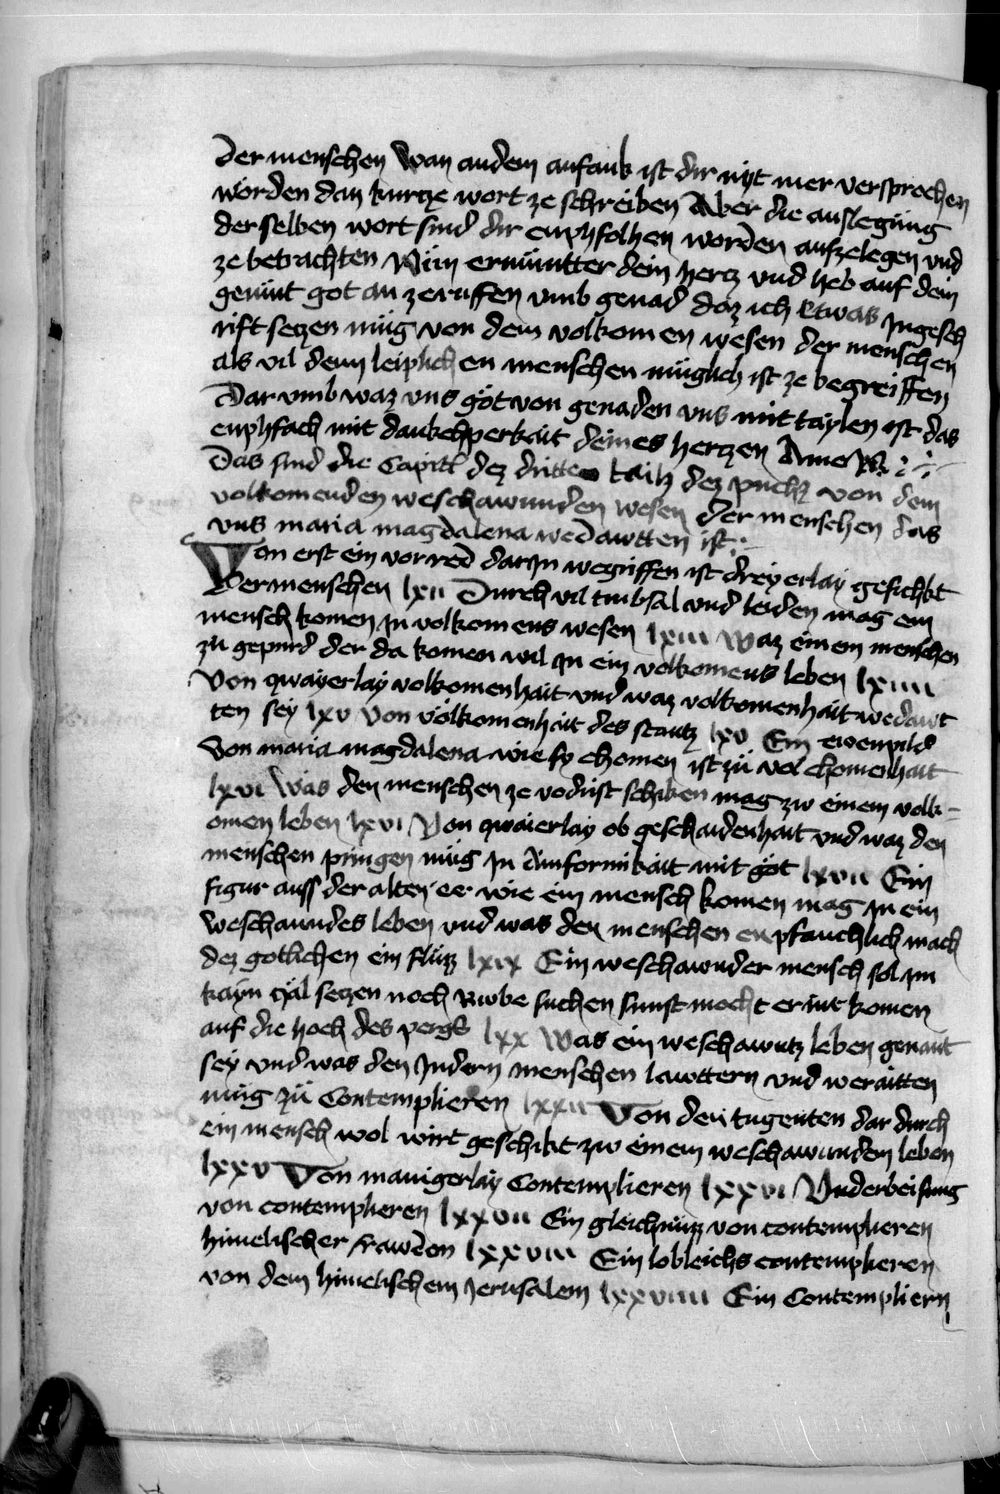 der menschen Wan an dem anfank ist dir nyt mer versprochen
worden dan kurtze wort ze schreiben Aber die auslegung
der selben wort sind dir enphfolhen worden aufzelegen vnd
ze betrachten Nün ermüntter dein hertz vnd heb auf dein
gemüt got an zerüffen vmb genad daz ich Etwas Jngesch
rift setzen müg von dem volkomen wesen der menschen
als vil denn leiplichen menschen müglich ist ze begreiffen
Dar vmb waz vns göt von genaden vns mittaylen ist das
enphfach mit dankchperkait deines hertzen Amen
Das sind die Capittl dez dritten tailz dez püchz von dem
volkomenden weschawunden wesen der menschen das
vns maria magdalena wedawtten ist
Von erst ein vorred darJn wegriffen ist dreyerlay geschikt
der menschen lxii Durch vil trubsal vnd leiden mag ein
mensch komen Jn volkomens wesen lxiii Waz einem menschen
zu gepürd der da komen wil Jn ein volkomens leben lxiiii
Von qwayerlay volkomenhait vnd waz volkomenhait wedawt
ten sey lxv Von volkomenhait des stantz lxv Ein ewenpild
Von maria magdalena wie sy chomen ist zü volchomenhait
lxvi Was den menschen ze vodrist schiken mag zw einem volk-
omen leben lxvi Von qwaierlay ob geschaidenhait vnd waz den
menschen pringen müg Jn Ainformikait mit göt lxvii Ein
figur auss der alten ee wie ein mensch komen mag Jn ein
weschaundes leben vnd was den menschen enpfanchlich mach
dez gotlichen ein flüzz lxix Ein weschawnder mensch sol im
kayn zjal setzen noch Rwbe suchen sunst mocht er nit komen
auf die hoch des pergs lxx Was ein weschawntz leben genant
sey vnd was den Jndern menschen lawttern vnd weraitten
müg zü Contemplieren lxxii Von den tugenten dar durch
ein mensch wol wirt geschikt zw einem weschawunden leben
lxxv Von manigerlay Contemplieren lxxvi Vnderbeisung
von contemplieren lxxvii Ein gleichnüzz von contemplieren
himelischer frawden lxxviii Ein lobleichs contemplieren
von dem himelischem Jerusalem lxxviiii Ein Contempliern